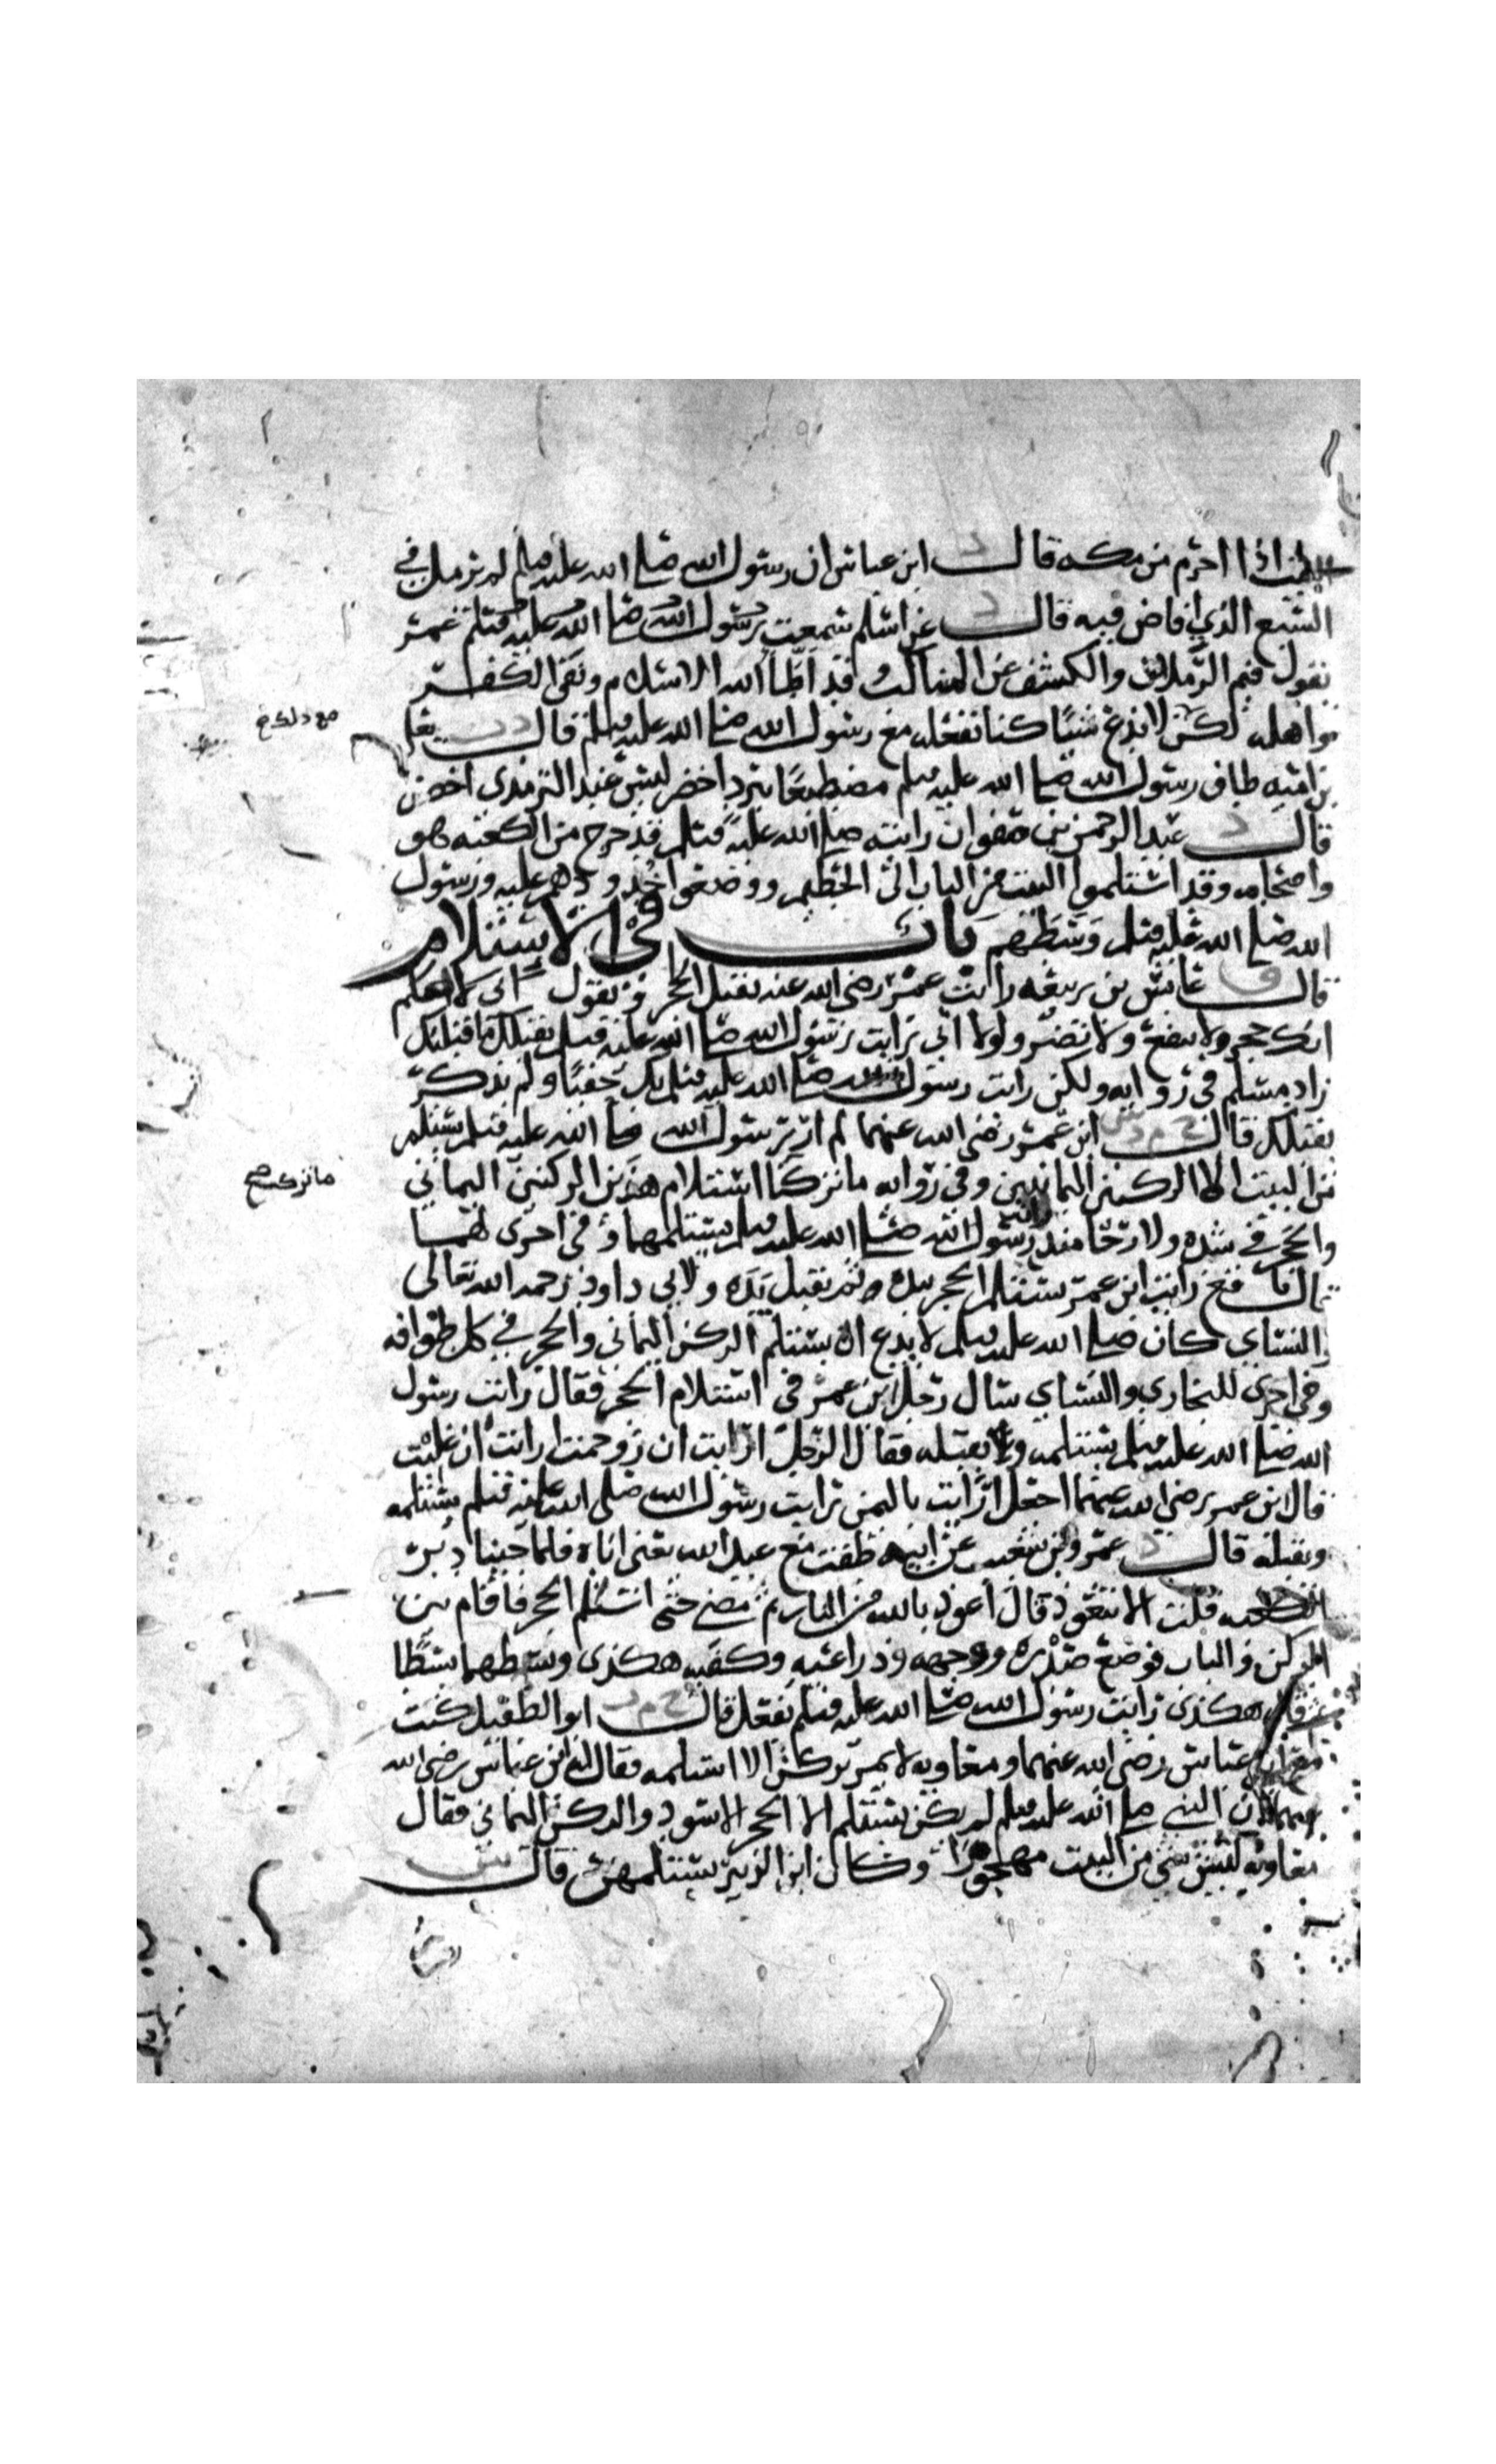 بالبيت اذا احرم من مكه قال د ابن عباس ان رسول الله صلى الله عليه وسلم لم يرمل في
السبع الذي افاض فيه قال د عن اسلم سمعت عمر
يقول فيم الرملان والكشف عن المناكب وقد اطأ الله الاسلام ونفى الكفر
واهله لكن لا ندع شيئا كنا نفعله مع رسول الله صلى الله عليه وسلم قال د ت يعلى
بن اميه طاف رسول الله صلى الله عليه وسلم مضطبعا ببرد اخضر ليس عند الترمذي اخضر
قال د عبد الرحمن بن صفوان رايته صلى الله عليه وسلم قد خرج من الكعبه هو
واصحابه وقد استلموا البيت من الباب الى الحطيم ووضعوا خدودهم عليه ورسول
الله صلى الله عليه وسلم وسطهم باب في الاستلام
قال ق عابس بن ربيعه رايت عمر رضي الله عنه يقبل الحجر ويقول اني لاعلم
انك حجر ولا تنفع ولا تضر ولولا اني رايت رسول الله صلى الله عليه وسلم يقبلك ما قبلتك
زاد مسلم في روايه ولكن رايت رسول الله صلى الله عليه وسلم بك حفيا ولم يذكر
يقبلك قال خ م د س ابن عمر رضي الله عنهما لم ار رسول الله صلى الله عليه وسلم يستلم
من البيت الا الركنين اليمانيين وفي روايه ما تركنا استلام هذين الركنين اليماني
والحجر في شده ولا رخا منذ رايت رسول الله صلى الله عليه وسلم يستلمهما وفي اخرى لهما
قال نافع رايت ابن عمر يستلم الحجر بيده ثم يقبل يده ولابي داود رحمه الله تعالى
والنساي كان صلى الله عليه وسلم لا يدع ان يستلم الركن اليماني والحجر في كل طوافه
وفي اخرى للبخاري والنساي سال رجل ابن عمر في استلام الحجر فقال رايت رسول
الله صلى الله عليه وسلم يستلمه ويقبله فقال الرجل ارايت ان زوحمت ارايت ان غلبت
قال ابن عمر رضي الله عنهما اجعل ارايت باليمن رايت رسول الله صلى الله عليه وسلم يستلمه
ويقبله قال د عمرو بن شعيب عن ابيه طفت مع عبد الله يعني اباه فلما جينا دبر
الكعبه قلت الا تتعوذ قال اعوذ بالله من النار ثم مضى حتى استلم الحجر فاقام بين
الركن والباب فوضع صدره ووجهه وذراعيه وكفيه هكذى وبسطهما بسطا
وقال هكذى رايت رسول الله صلى الله عليه وسلم يفعل قال خ م ت ابو الطفيل كنت
مع ابن عباس رضي الله عنهما ومعاويه لا يمر بركن الا استلمه فقال له ابن عباس رضي الله
عنهما ان النبي صلى الله عليه وسلم لم يكن يستلم الا الحجر الاسود والركن اليماني فقال
معاويه ليس شي من البيت مهجورا وكان ابن الزبير يستلمهن قال س
مع ذلك خ
ما تركت صح